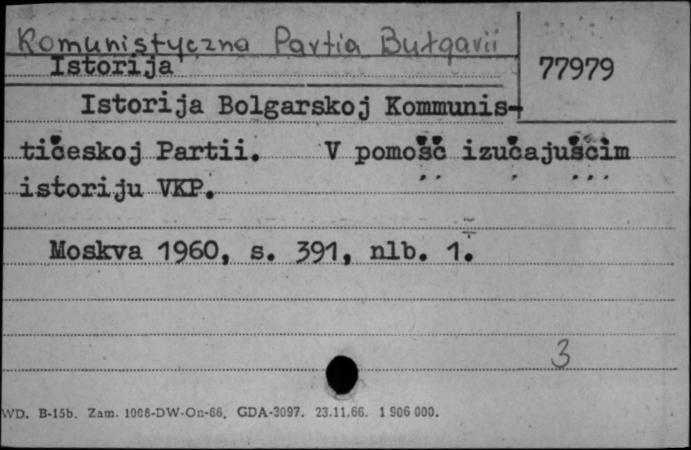 Komunistyczna Partia Bułgarii
Istorija
77979
Istorija Bolgarskoj Kommunis-
tičeskoj Partii. V pomošč izučajuščim
istoriju VKP.
Moskva 1960, s. 391, nlb. 1.
3
WD. B-15b. Zam. 1008-DW-On-66. GDA-3097. 23.11.66. 1 906 000.